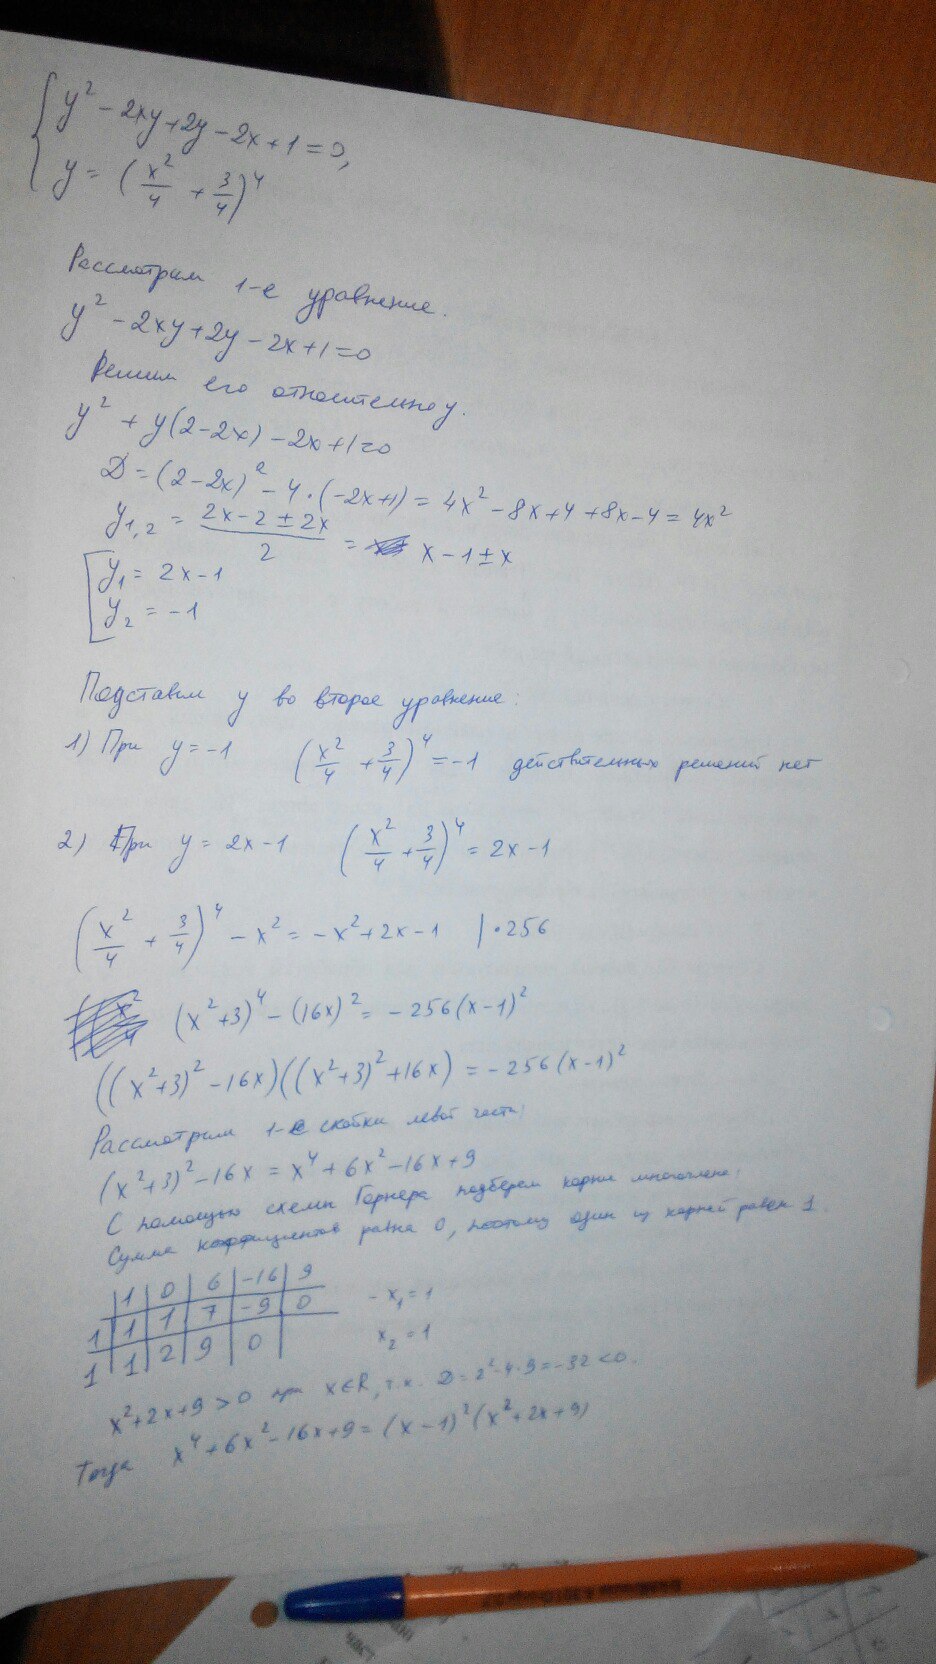 y² - 2xy + 2y - 2x + 1 = 0,
y = (x²/4 + 3/4)⁴
Рассмотрим 1-е уравнение.
y² - 2xy + 2y - 2x + 1 = 0
Решим его относительно y.
y² + y(2 - 2x) - 2x + 1 = 0
D = (2 - 2x)² - 4 · (-2x + 1) = 4x² - 8x + 4 + 8x - 4 = 4x²
y₁,₂ = (2x - 2 ± 2x)/2 = x - 1 ± x
y₁ = 2x - 1
y₂ = -1
Подставим y во второе уравнение:
1) При y = -1 (x²/4 + 3/4)⁴ = -1 действительных решений нет
2) При y = 2x - 1 (x²/4 + 3/4)⁴ = 2x - 1
(x²/4 + 3/4)⁴ - x² = -x² + 2x - 1 | · 256
(x² + 3)⁴ - (16x)² = -256(x - 1)²
((x² + 3)² - 16x)((x² + 3)² + 16x) = -256(x - 1)²
Рассмотрим 1-е скобки левой части:
(x² + 3)² - 16x = x⁴ + 6x² - 16x + 9
С помощью схемы Горнера подберем корни многочлена:
Сумма коэффициентов равна 0, поэтому один из корней равен 1.
1 | 0 | 6 | -16 | 9
1 | 1 | 1 | 7 | -9 | 0 - x₁ = 1
1 | 1 | 2 | 9 | 0 x₂ = 1
x² + 2x + 9 > 0 при x ∈ R, т.к. D = 2² - 4·9 = -32 < 0.
Тогда x⁴ + 6x² - 16x + 9 = (x - 1)²(x² + 2x + 9)